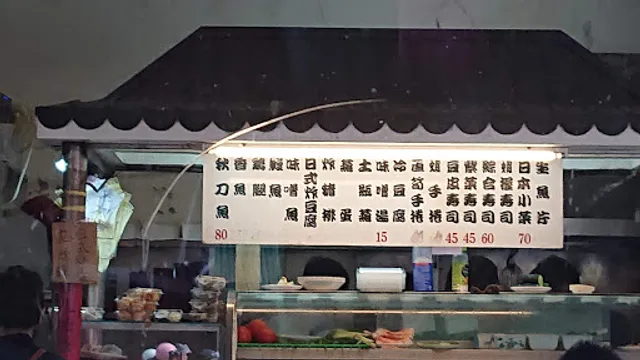 生魚片
日本小菜 70
蝦握壽司
綜合壽司 60
熏菜壽司 45
豆皮壽司 45
蝦手捲
蘆筍手捲
冷豆腐
味噌湯 15
土瓶蒸
蒸蛋
炸豬排
日式炸豆腐
味噌魚
鯢魚
雞腿
香魚
秋刀魚 80